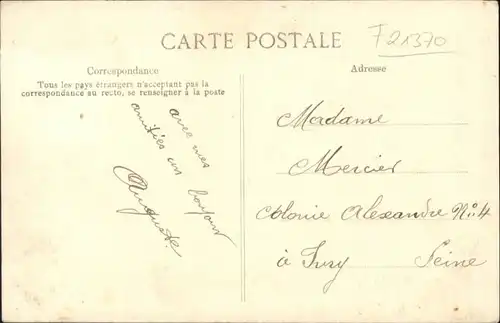 CARTE POSTALE
F21370
Correspondance
Tous les pays étrangers n'acceptant pas la
correspondance au recto, se renseigner à la poste
Adresse
avec mes
amitiés un bonjour
Auguste.
Madame
Mercier
Colonie Alexandre N° 4
à Ivry Seine